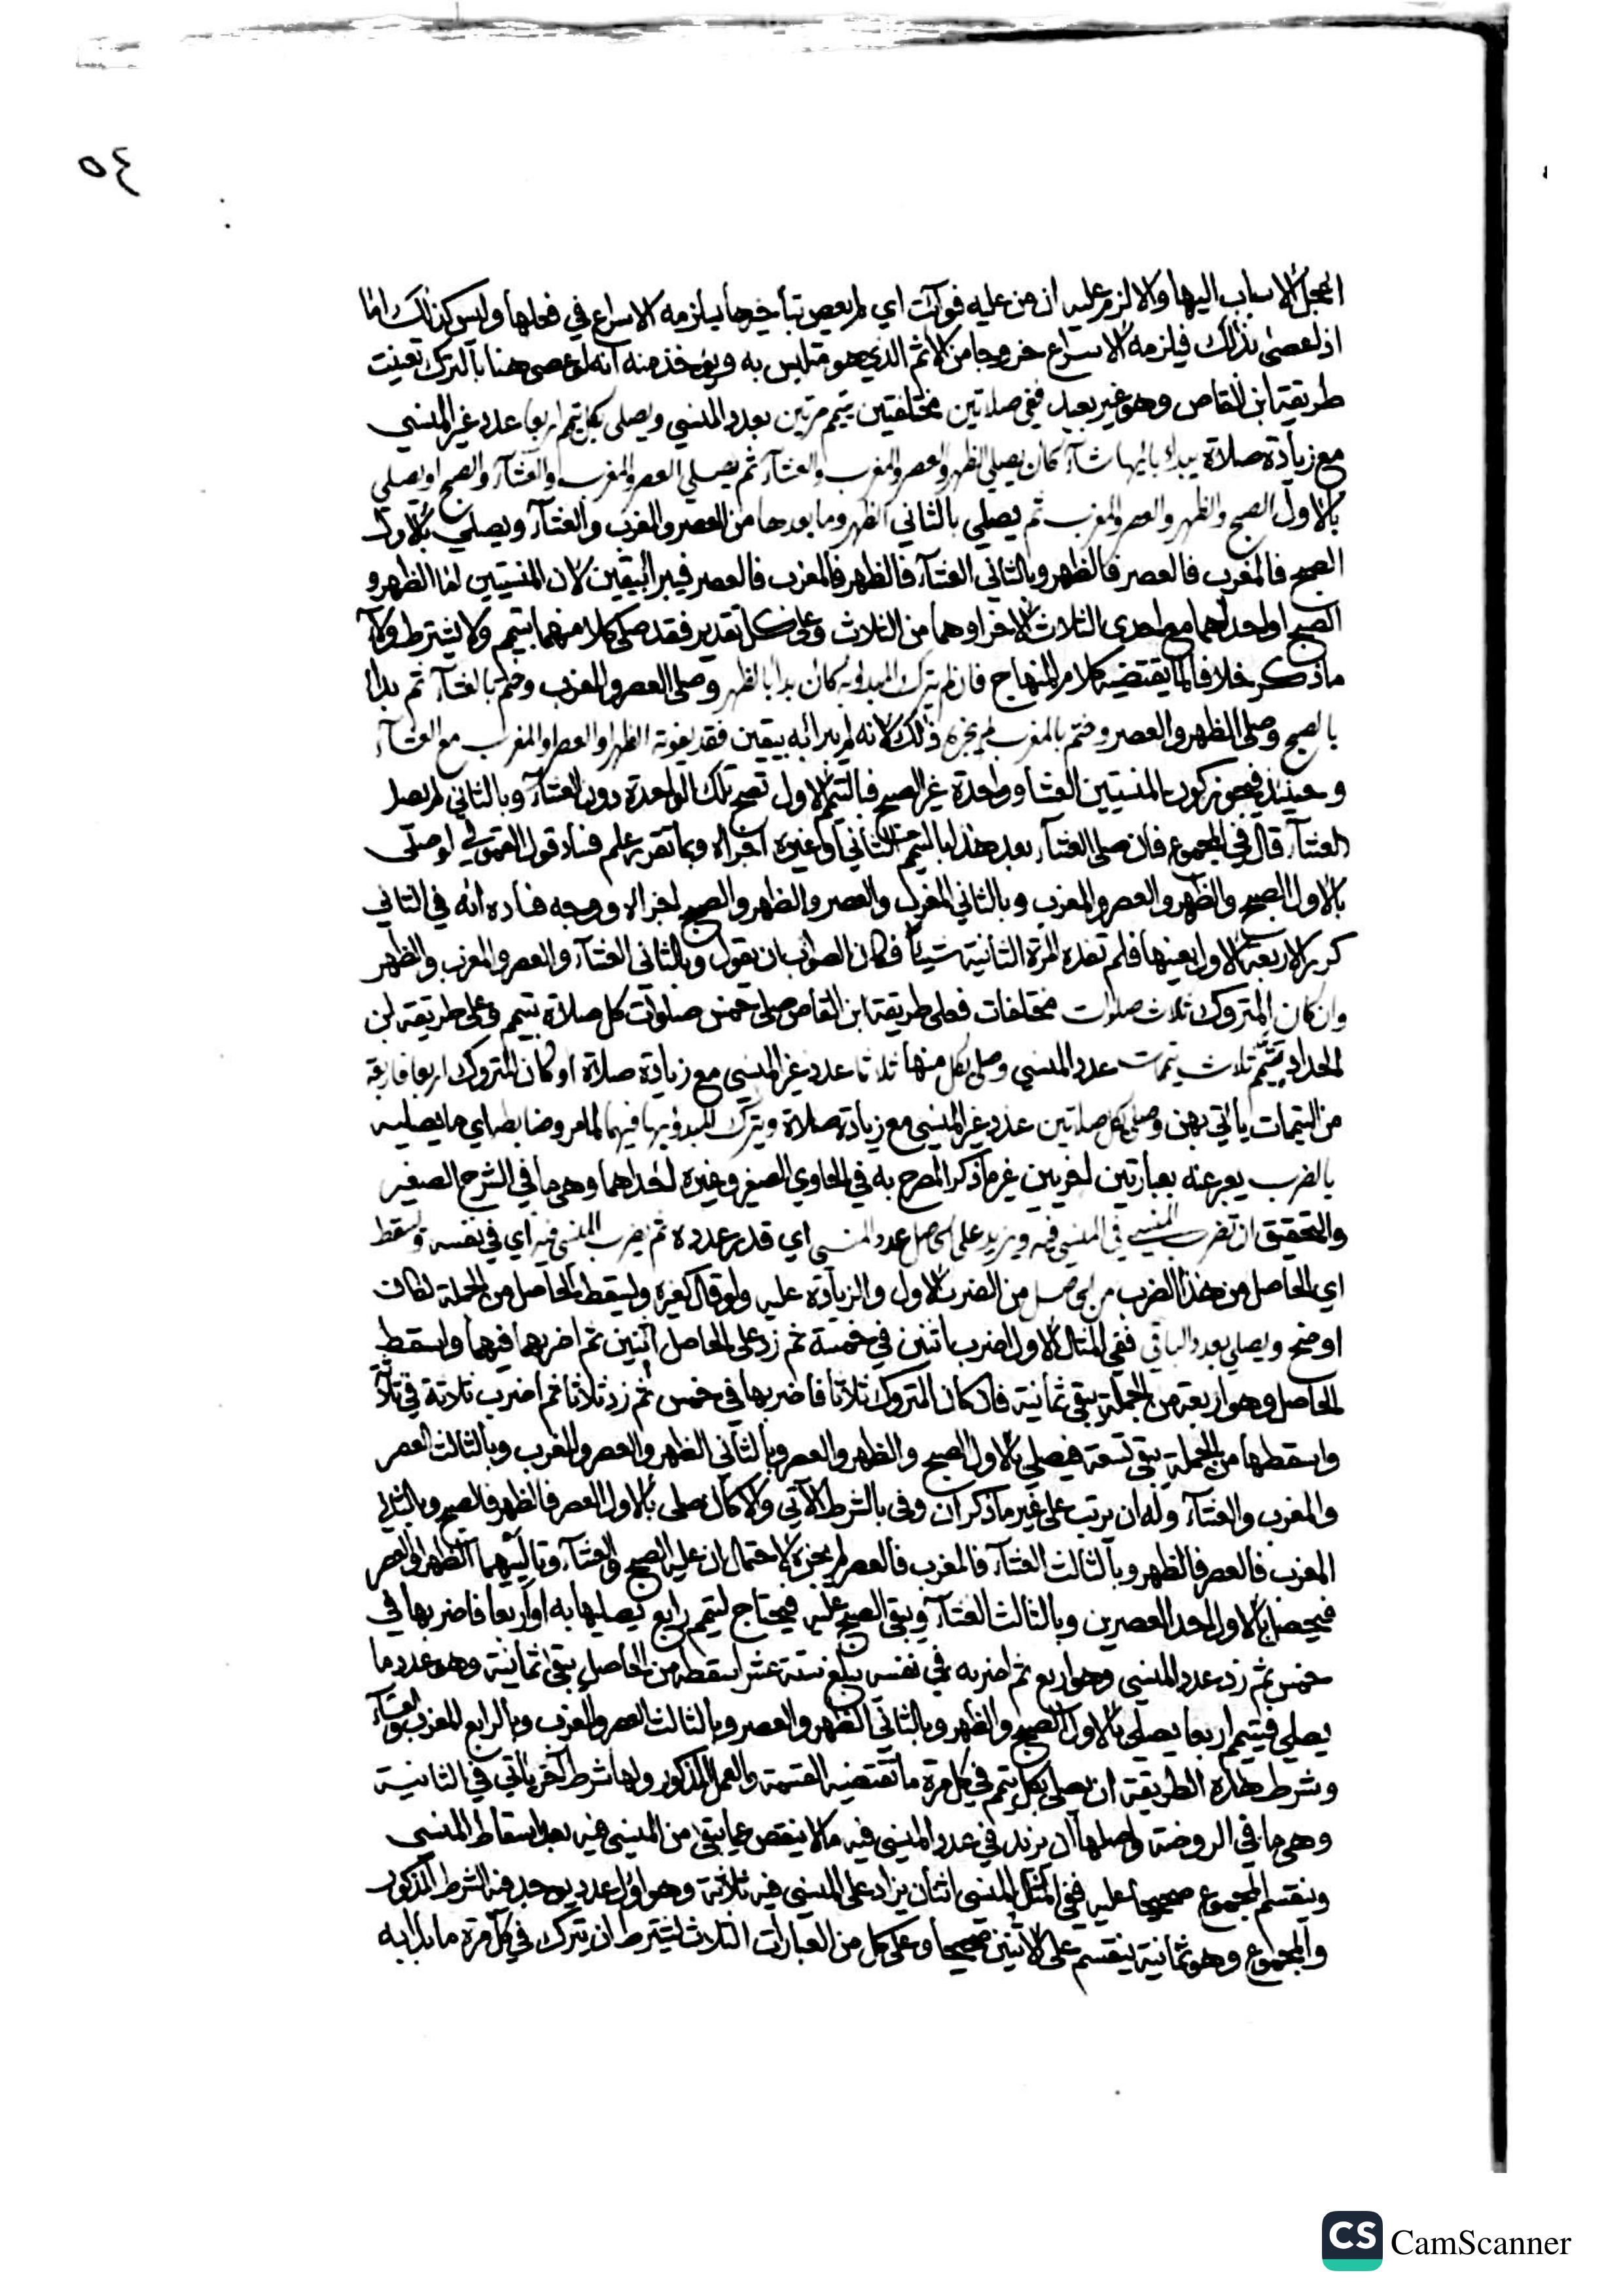 ٥٤
لاسباب اليها والا لزم عليه ان من عليه فوائت اي لم يعص بتأخيرها يلزمه الاسراع في فعلها وليس كذلك اما
اذا عصى بذلك فيلزمه الاسراع خروجا من الاثم الذي هو متلبس به ويؤخذ منه انه لو عصى هنا بالترك تعينت
طريقة ابن القاص وهو غير بعيد ففي صلاتين مختلفتين يتيمم مرتين بعدد المنسي ويصلي بكل تيمم اربعا عدد غير المنسي
مع زيادة صلاة يبدا باليها شاء كان يصلي الظهر والعصر والمغرب والعشآء ثم يصلي العصر والمغرب والعشآء والصبح او يصلي
بالاول الصبح والظهر والعصر والمغرب ثم يصلي بالثاني الظهر وما بعدها من العصر والمغرب والعشآء ويصلي بالاول
الصبح فالمغرب فالعصر فالظهر وبالثاني العشآء فالظهر فالمغرب فالعصر فيبرا بيقين لان المنسيتين اما الظهر و
الصبح او احداهما مع احدى الثلاث الاخر او هما من الثلاث وعلى كل تقدير فقد صلى كلا منهما بتيمم ولا يشترط ولاء
ماذكر خلافا لما يقتضيه كلام المنهاج فان لم يترك المبدوء به كان بدا بالظهر وصلى العصر والمغرب وختم بالعشآء ثم بدا
بالصبح وصلى الظهر والعصر وختم بالمغرب لم يجزه ذلك لانه لم يبرا به بيقين فقد يفوته الظهر او العصر او المغرب مع العشآء
وحينئذ فيجوز كون المنسيتين العشا وواحدة غير الصبح فبالتيمم الاول تصح تلك الواحدة دون العشآء وبالثاني لم يصل
العشآء قال في المجموع فان صلى العشآء بعد هذا بالتيمم الثاني او غيره اجزاه وبما تقرر علم فساد قول القمولي لو صلى
بالاول الصبح والظهر والعصر والمغرب وبالثاني المغرب والعصر والظهر والصبح اجزاه ووجه فساده انه في الثاني
كرر الاربعة الاول بعينها فلم تفده المرة الثانية شيئا فكان الصواب ان يقول وبالثاني العشآء والعصر والمغرب والظهر
وان كان المتروك ثلاث صلوات مختلفات فعلى طريقة ابن القاص صلى خمس صلوات كل صلاة بتيمم وعلى طريقة ابن
الحداد يتيمم ثلاث تيممات عدد المنسي وصلى بكل منها ثلاثا عدد غير المنسي مع زيادة صلاة او كان المتروك اربعا فاربعة
من التيممات يأتي بهن وصلى بكل صلاتين عدد غير المنسي مع زيادة صلاة ويترك المبدوء بها فيهما لما مر وضابط اي ما يصليه
بالضرب يعبر عنه بعبارتين اخريين غير ما ذكر المصرح به في الحاوي الصغير وغيره احداهما وهي ما في الشرح الصغير
والتحقيق ان تضرب المنسي في المنسي فيه ويزيد على الحاصل عدد المنسي اي قدر عدده ثم يضرب المنسي فيه اي في نفسه ويسقط
اي الحاصل من هذا الضرب من الحاصل من الضرب الاول والزيادة عليه ولو قال كغيره ويسقط الحاصل من الجملة لكان
اوضح ويصلي بعدد الباقي ففي المثال الاول اضرب اثنين في خمسة ثم زد على الحاصل اثنين ثم اضربهما فيهما واسقط
الحاصل وهو اربعة من الجملة يبقى ثمانية فان كان المتروك ثلاثا فاضربها في خمس ثم زد ثلاثا ثم اضرب ثلاثة في ثلاثة
واسقطها من الجملة يبقى تسعة فيصلي بالاول الصبح والظهر والعصر وبالثاني الظهر والعصر والمغرب وبالثالث العصر
والمغرب والعشآء وله ان يرتب على غير ما ذكر ان وفى بالشرط الآتي والا كان صلى بالاول العصر فالظهر فالصبح وبالثاني
المغرب فالعصر فالظهر وبالثالث العشآء فالمغرب فالعصر لم يجزه لاحتمال ان عليه الصبح والعشآء وتاليهما الظهر او العصر
فيحصل بالاول احد العصرين وبالثالث العشآء ويبقى الصبح عليه فيحتاج لتيمم رابع يصليها به او اربعا فاضربها في
خمس ثم زد عدد المنسي وهو اربع ثم اضربه في نفسه يبلغ ستة عشر اسقطه من الحاصل يبقى ثمانية وهو عدد ما
يصلي فيتيمم اربعا يصلي بالاول الصبح والظهر وبالثاني الظهر والعصر وبالثالث العصر والمغرب وبالرابع المغرب والعشآء
وشرط هذه الطريقة ان يصلي بكل تيمم في كل مرة ما تقتضيه القسمة والعمل المذكور ولها شرط آخر يأتي في الثانية
وهي ما في الروضة واصلها ان يزيد في عدد المنسي فيه ما لا ينقص عما يبقى من المنسي فيه بعد اسقاط المنسي
وينقسم المجموع صحيحا عليه ففي المثل المنسي اثنان يزاد على المنسي فيه ثلاثة وهو اول عدد يوجد فيه الشرط المذكور
والمجموع وهو ثمانية ينقسم على الاثنين صحيحا وعلى كل من العبارات الثلاث يشترط ان يترك في كل مرة ما بدا به
CS CamScanner